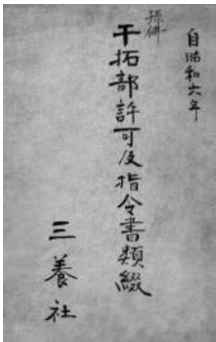 自昭和六年
干拓部許可及指令書類綴
三養社